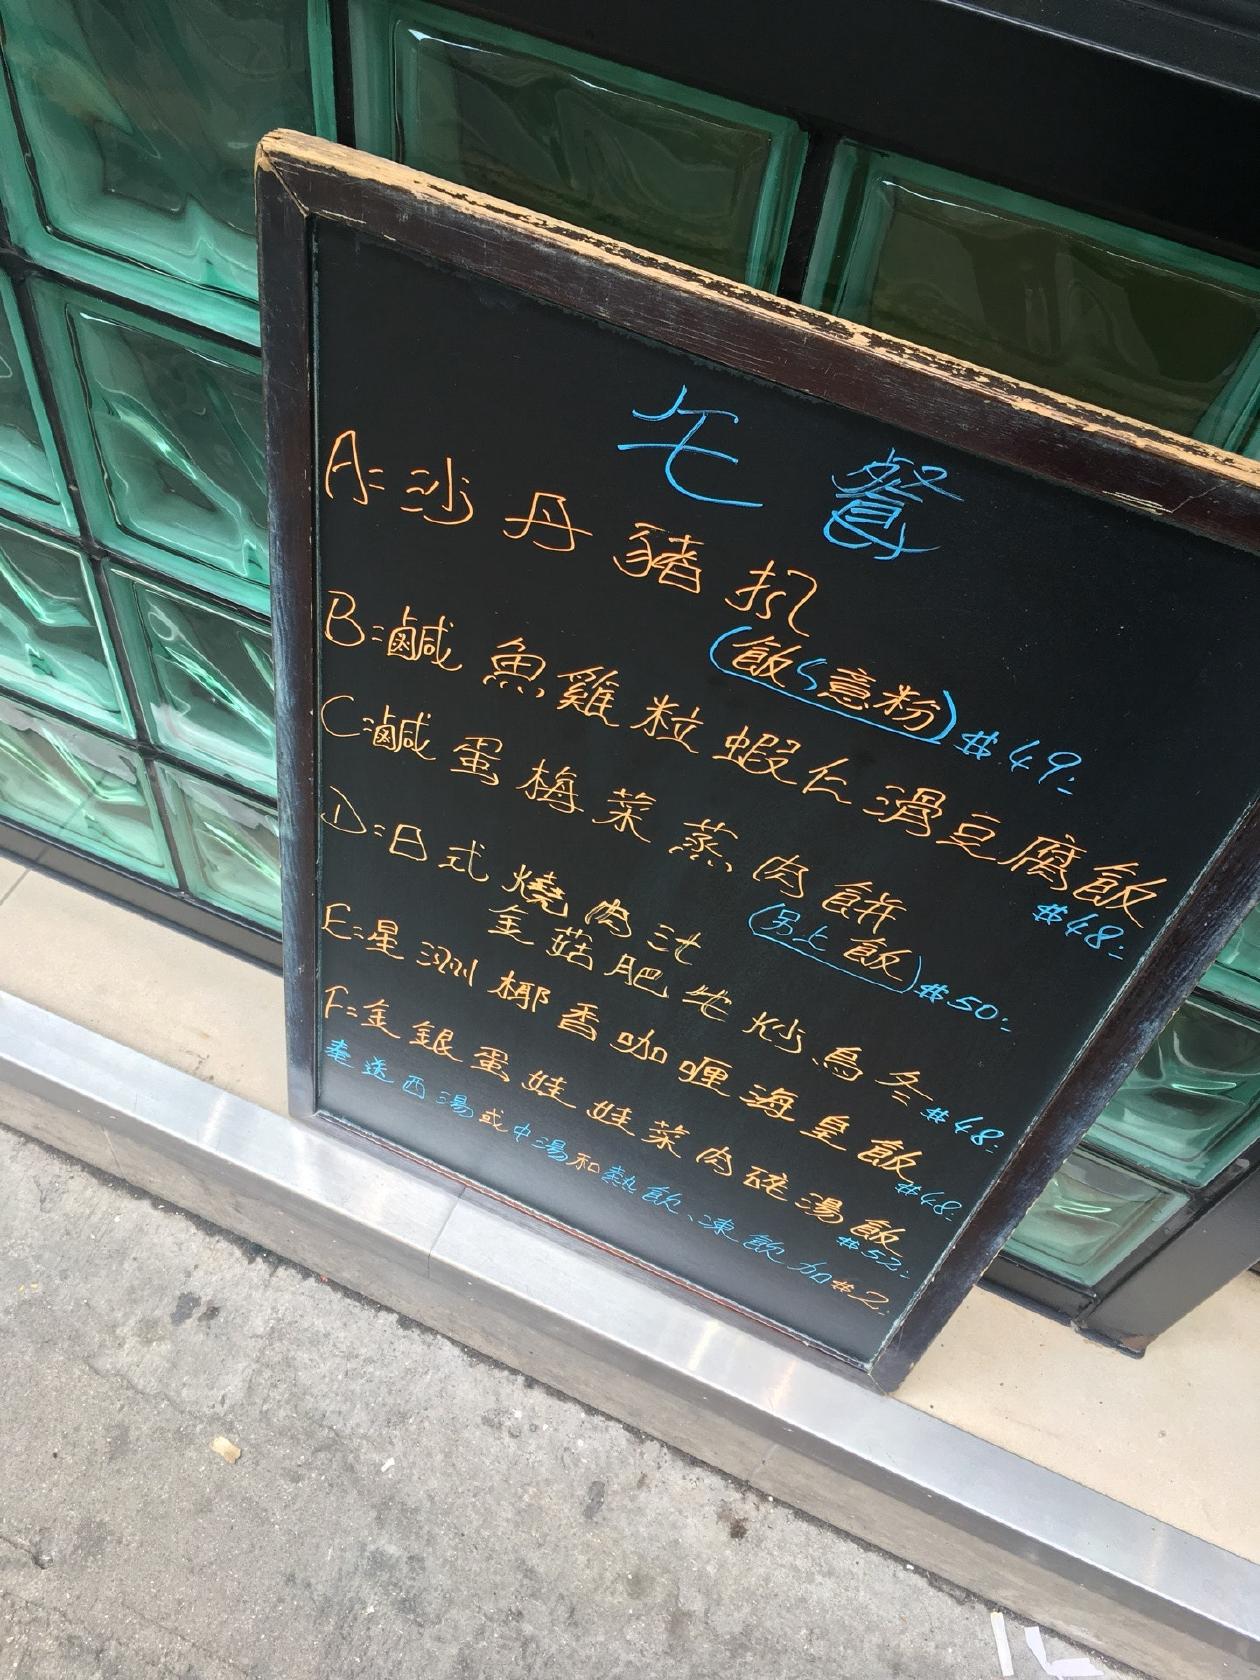 乍餐
A=沙丹豬扒
(飯/意粉) $49.-
B=鹹魚雞粒蝦仁滑豆腐飯
$48.-
C=鹹蛋梅菜蒸肉餅
(另上飯) $50.-
D=日式燒肉汁
金菇肥牛炒烏冬
$48.-
E=星洲椰香咖喱海皇飯
$48.-
F=金銀蛋娃娃菜肉碎湯飯
$52.-
奉送西湯或中湯和熱飲、凍飲加$2.-